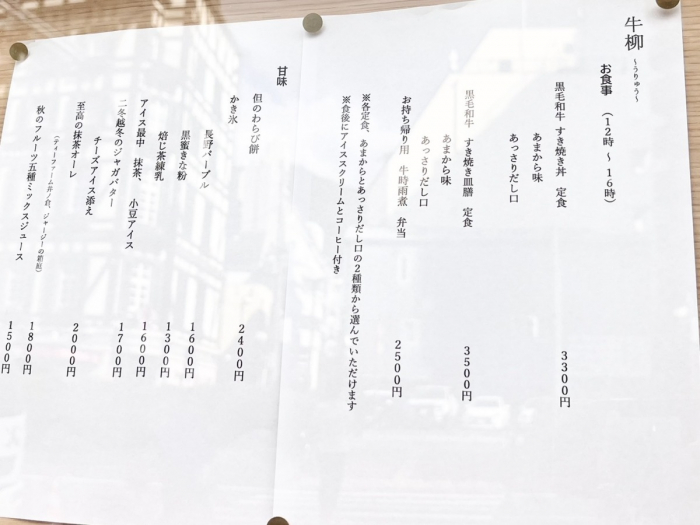 牛柳
～うりゅう～
お食事　（12時 ～ 16時）
黒毛和牛　すき焼き丼　定食　3300円
あまから味
あっさりだし口
黒毛和牛　すき焼き皿膳　定食　3500円
あまから味
あっさりだし口
お持ち帰り用　牛時雨煮　弁当　2500円
※各定食、あまからとあっさりだし口の2種類から選んでいただけます
※食後にアイスクリームとコーヒー付き
甘味
但のわらび餅　2400円
かき氷
長野パープル　1600円
黒蜜きな粉　1300円
焙じ茶練乳　1600円
アイス最中　抹茶、小豆アイス　1700円
二冬越冬のジャガバター
チーズアイス添え　2000円
至高の抹茶オーレ　1800円
秋のフルーツ五種ミックスジュース　1500円